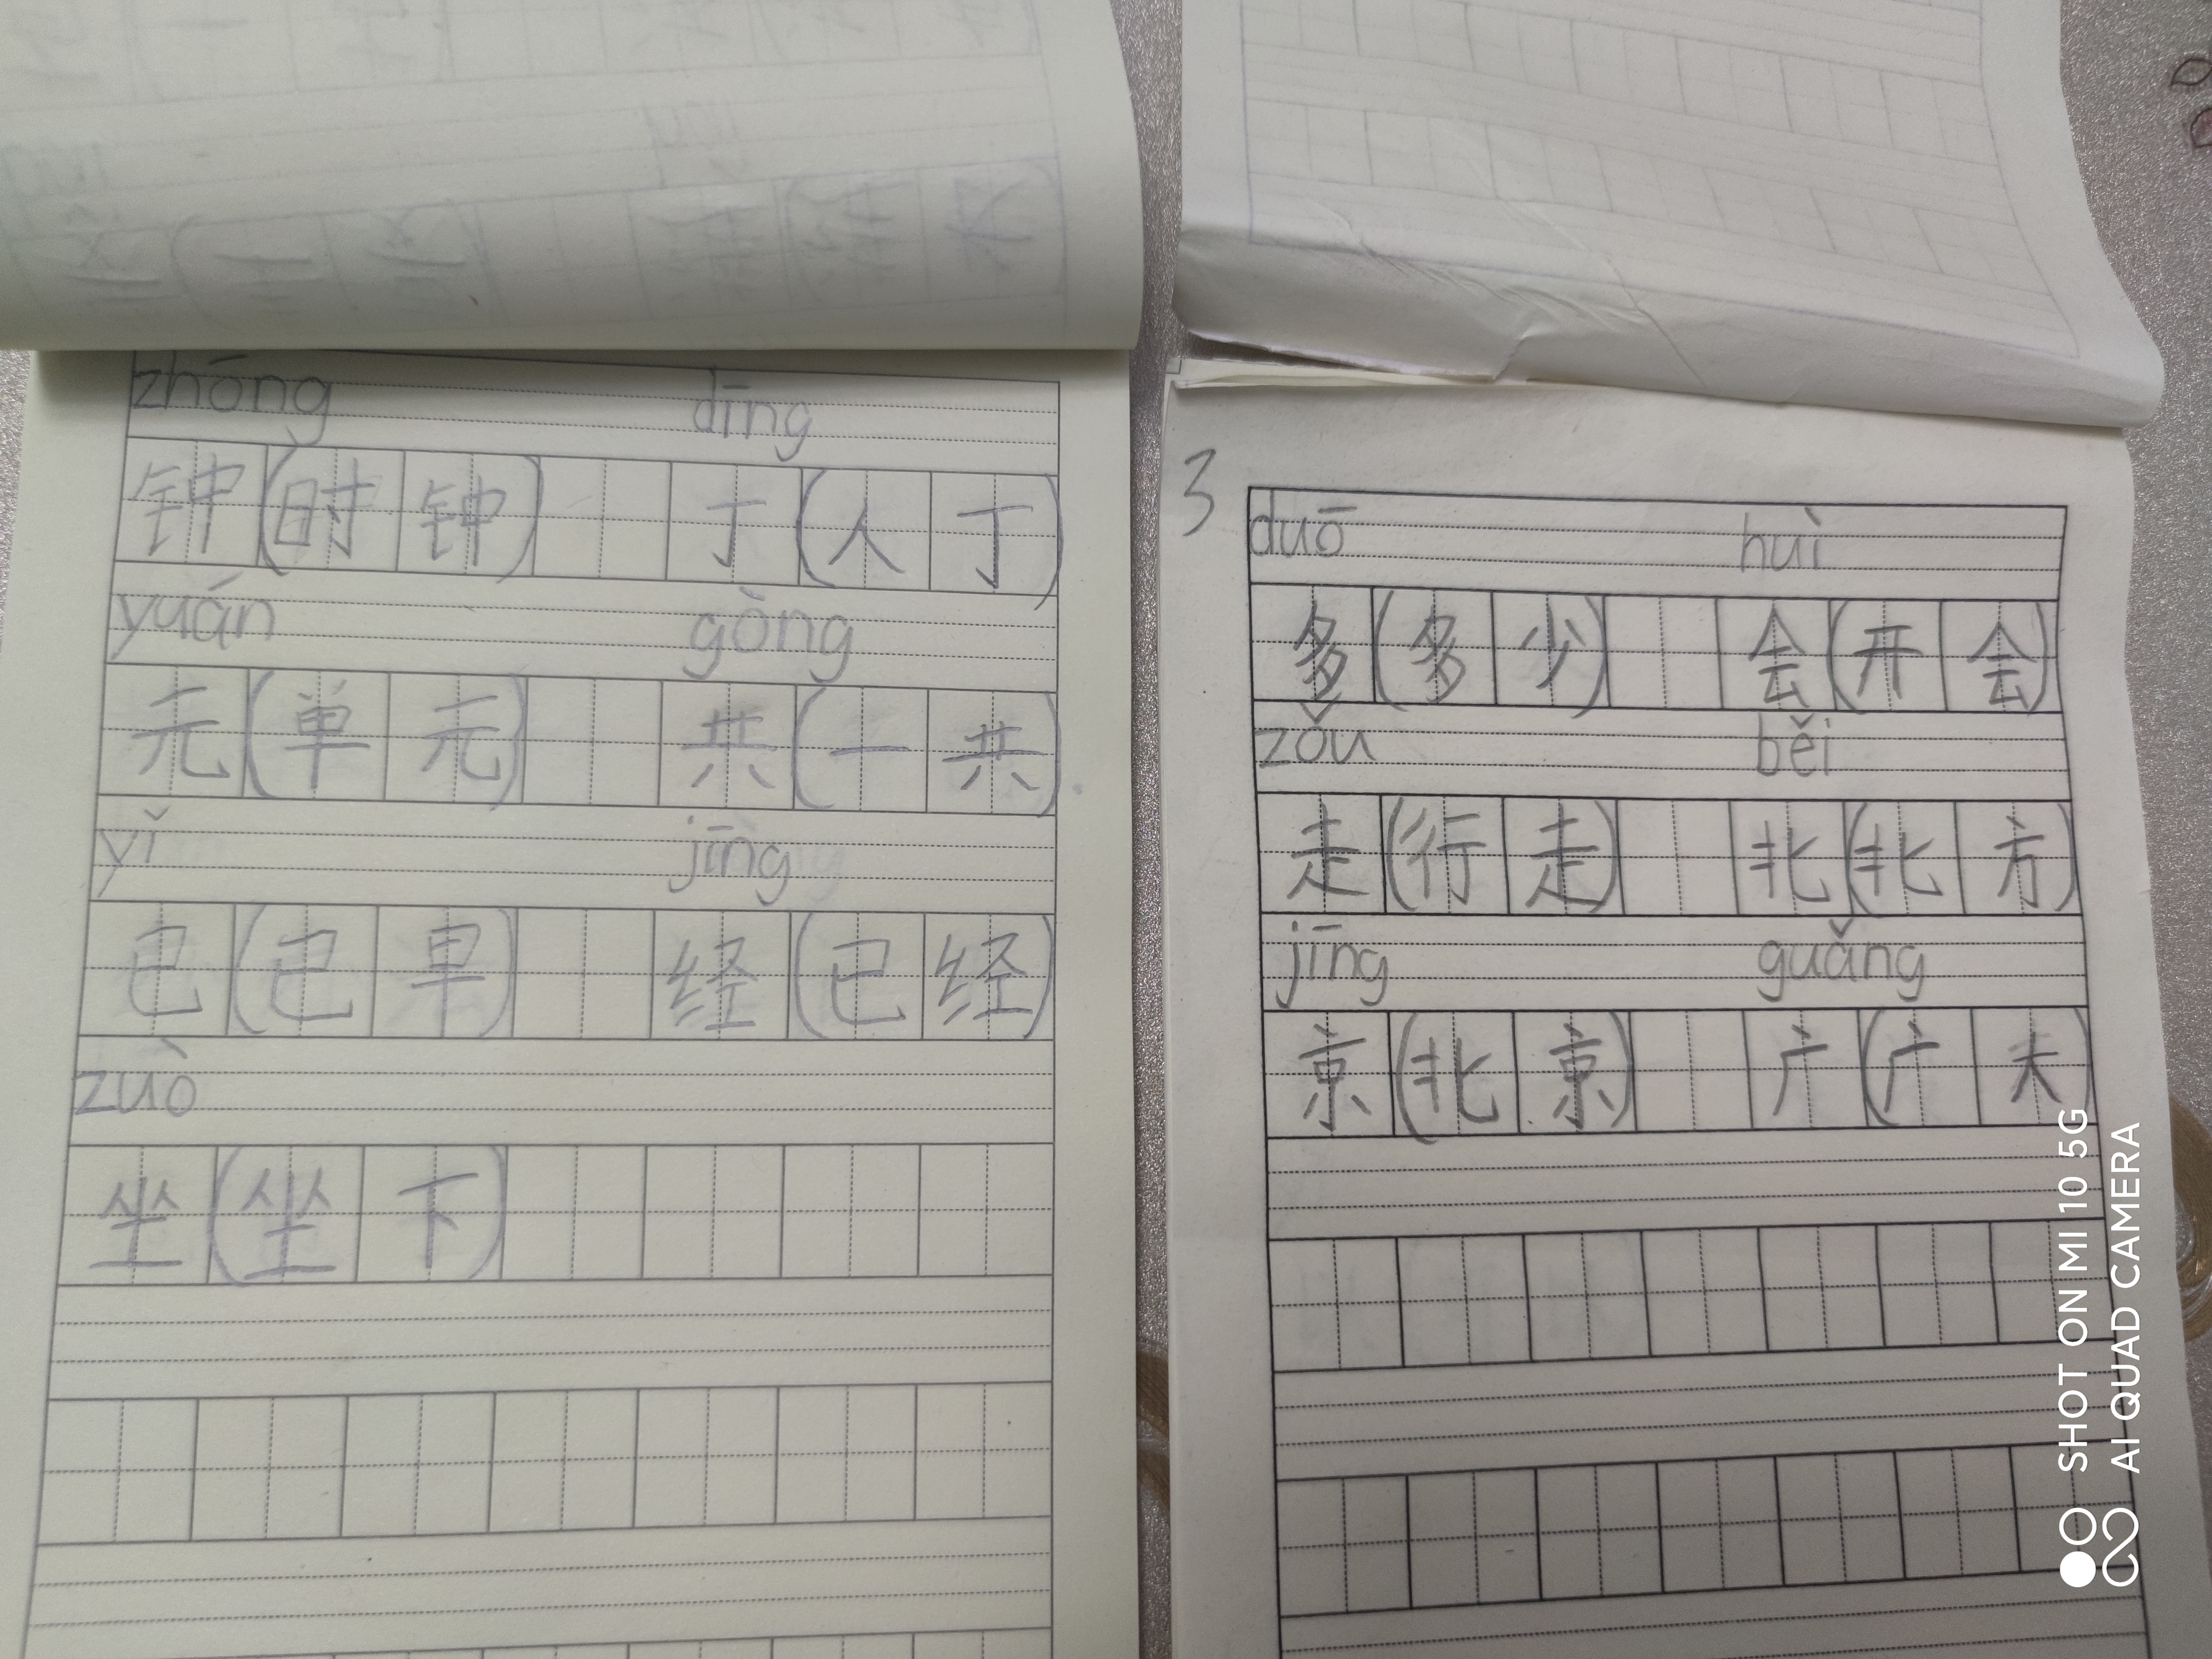 zhōng dīng
钟(时钟) 丁(人丁)
yuán gòng
元(单元) 共(一共)
yǐ jīng
已(已早) 经(已经)
zuò
坐(坐下)
3
duō huì
多(多少) 会(开会)
zǒu běi
走(行走) 北(北方)
jīng guǎng
京(北京) 广(广大)
SHOT ON MI 10 5G
AI QUAD CAMERA